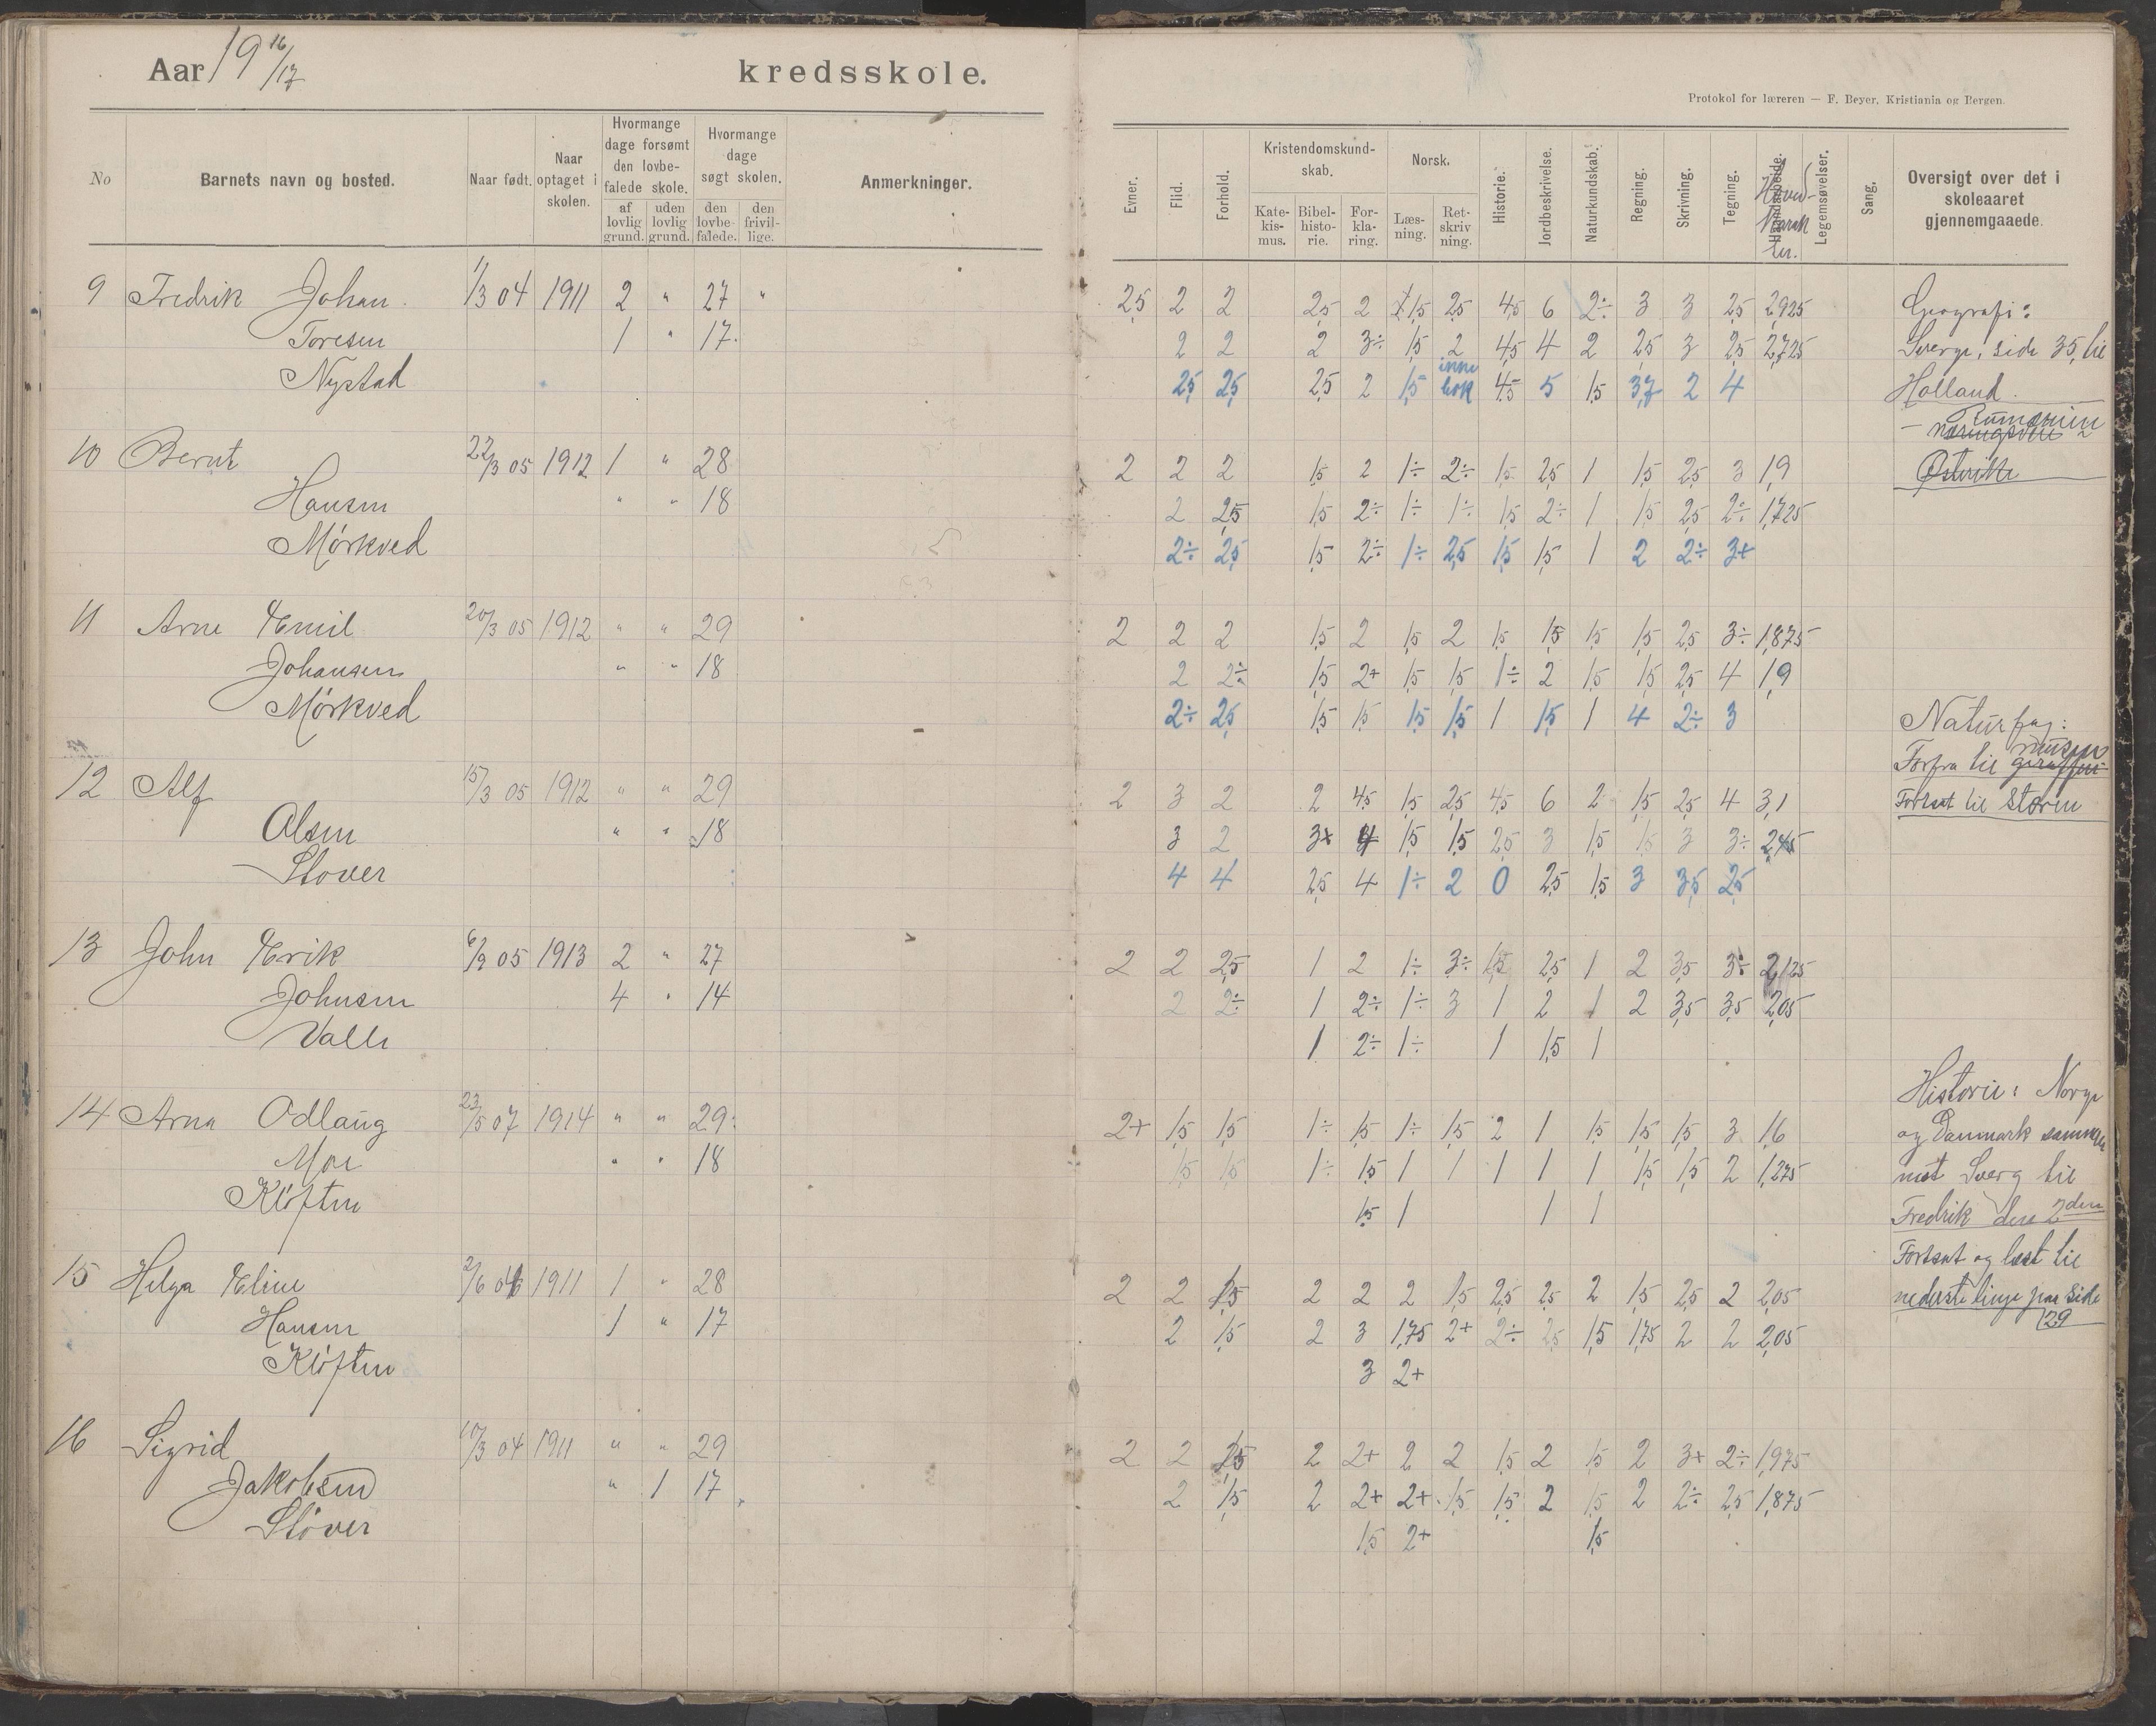 Aar 19 16/17 kredsskole.
Protokol for læreren — F. Beyer, Kristiania og Bergen.
No Barnets navn og bosted. Naar født. Naar optaget i skolen. Hvormange dage forsømt den lovbefalede skole. af lovlig grund. uden lovlig grund. Hvormange dage søgt skolen. den lovbefalede. den frivillige. Anmerkninger.
Evner. Flid. Forhold. Kristendomskundskab. Katekismus. Bibelhistorie. Forklaring. Norsk. Læsning. Retskrivning. Historie. Jordbeskrivelse. Naturkundskab. Regning. Skrivning. Tegning. Haandarbeide. Hovedkarakter. Legemsøvelser. Sang. Oversigt over det i skoleaaret gjennemgaaede.
9 Fredrik Johan 1/3 04 1911 2 " 27 " 2,5 2 2 2,5 2 1,5 2,5 4,5 6 2÷ 3 3 2,5 2,925 Geografi:
Toresen 1 " 17 2 2 2 3÷ 1,5 2 4,5 4 2 2,5 3 2,5 2,725 Sverge, side 35, til
Nystad 2,5 2,5 2,5 2 1,5 inne bok 4,5 5 1,5 3,7 2 4 Holland
— Rumænien
10 Bernt 22/3 05 1912 1 " 28 2 2 2 1,5 2 1÷ 2÷ 1,5 2,5 1 1,5 2,5 3 1,9 Østerike
Hansen " " 18 2 2,5 1,5 2÷ 1÷ 1÷ 1,5 2÷ 1 1,5 2,5 2÷ 1,725
Mørkved 2÷ 2,5 1,5 2÷ 1÷ 2,5 1,5 1,5 1 2 2÷ 3+
11 Arne Emil 20/3 05 1912 " " 29 2 2 2 1,5 2 1,5 2 1,5 1,5 1,5 1,5 2,5 3÷ 1,875
Johansen " " 18 2 2÷ 1,5 2+ 1,5 1,5 1÷ 2 1,5 1,5 2,5 4 1,9
Mørkved 2÷ 2,5 1,5 1,5 1,5 1,5 1 1,5 1 4 2÷ 3 Naturfag:
Forfra til giraffen musen
12 Alf 15/3 05 1912 " " 29 2 3 2 2 4,5 1,5 2,5 4,5 6 2 1,5 2,5 4 3,1 Fortsat til Stæren
Olsen " " 18 3 2 3+ 4 1,5 1,5 2,5 3 1,5 1,5 3 3÷ 2,45
Støver 4 4 2,5 4 1÷ 2 0 2,5 1,5 3 3,5 2,5
13 John Erik 6/9 05 1913 2 " 27 2 2 2,5 1 2 1÷ 3÷ 1,5 2,5 1 2 3,5 3÷ 2,125
Johnsen 4 " 14 2 2÷ 1 2÷ 1÷ 3 1 2 1 2 3,5 3,5 2,05
Valle 1 2÷ 1÷ 1 1,5 1
Historie: Norge
14 Arna Odlaug 23/5 07 1914 " " 29 2+ 1,5 1,5 1÷ 1,5 1÷ 1,5 2 1 1,5 1,5 1,5 3 1,6 og Danmark sammen
Moe " " 18 1,5 1,5 1÷ 1,5 1 1 1 1 1 1,5 1,5 2 1,275 mot Sverg til
Kløften 1,5 1 1 1 Fredrik den 2den
Fortsat og læst til
15 Helga Eline 2/6 04 1911 1 " 28 2 2 1,5 2 2 2 1,5 2,5 2,5 2 1,5 2,5 2 2,05 nederste linje paa side
Hansen 1 " 17 2 1,5 2 3 1,75 2+ 2÷ 2,5 1,5 1,75 2 2 2,05 129
Kløften 3 2+
16 Sigrid 10/3 04 1911 " " 29 2 2 1,5 2 2+ 2 2 1,5 2 1,5 2 3+ 2÷ 1,975
Jakobsen " 1 17 2 1,5 2 2+ 2+ 1,5 1,5 2 1,5 2 2÷ 2,5 1,875
Støver 1,5 2+ 1,5